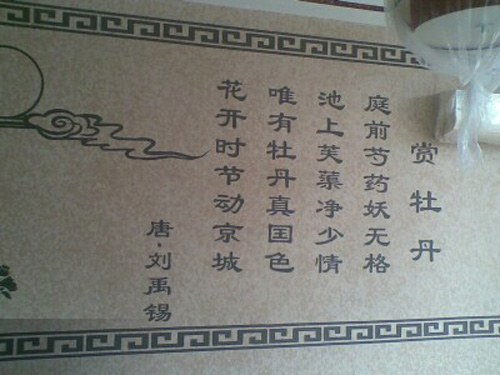 赏牡丹
庭前芍药妖无格
池上芙蕖净少情
唯有牡丹真国色
花开时节动京城
唐·刘禹锡